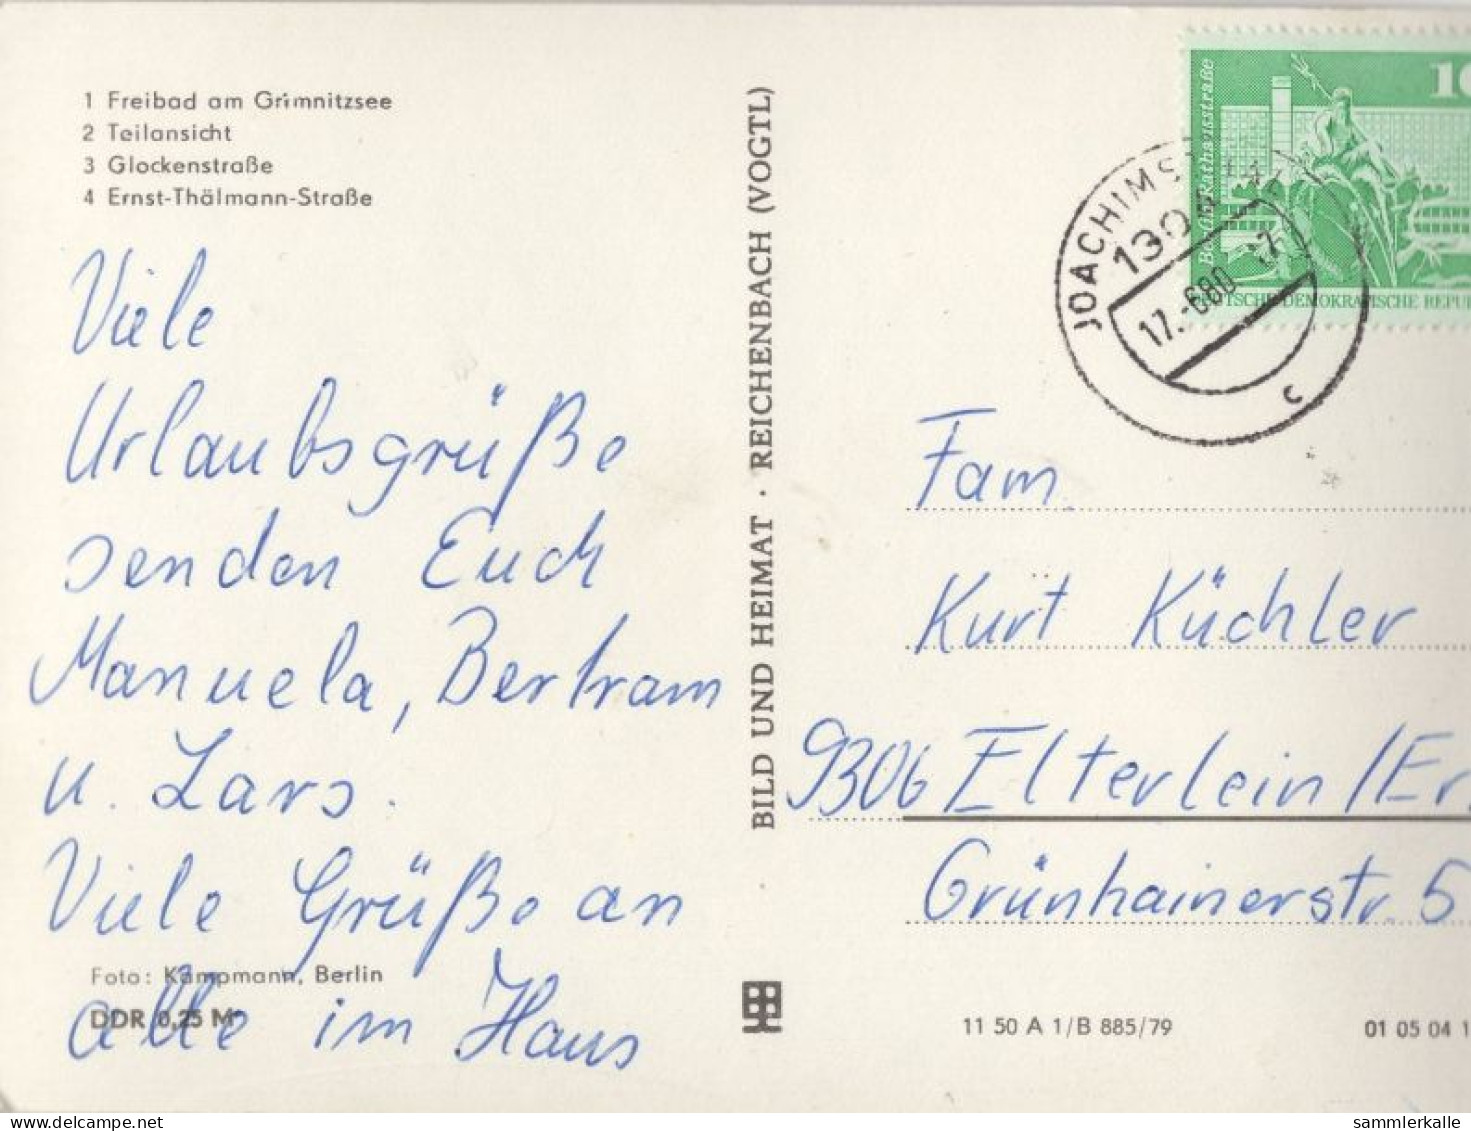 1 Freibad am Grimnitzsee
2 Teilansicht
3 Glockenstraße
4 Ernst-Thälmann-Straße
Viele
Urlaubsgrüße
senden Euch
Manuela, Bertram
u. Lars.
Viele Grüße an
alle im Haus
Foto: Kämpmann, Berlin
DDR 0,25 M
BILD UND HEIMAT · REICHENBACH (VOGTL)
10
DEUTSCHE DEMOKRATISCHE REPU
JOACHIMSTHAL
17.-6.80
c
Fam.
Kurt Küchler
9306 Elterlein /Er
Grünhainerstr. 5
11 50 A 1/B 885/79
01 05 04 1
sammlerkalle